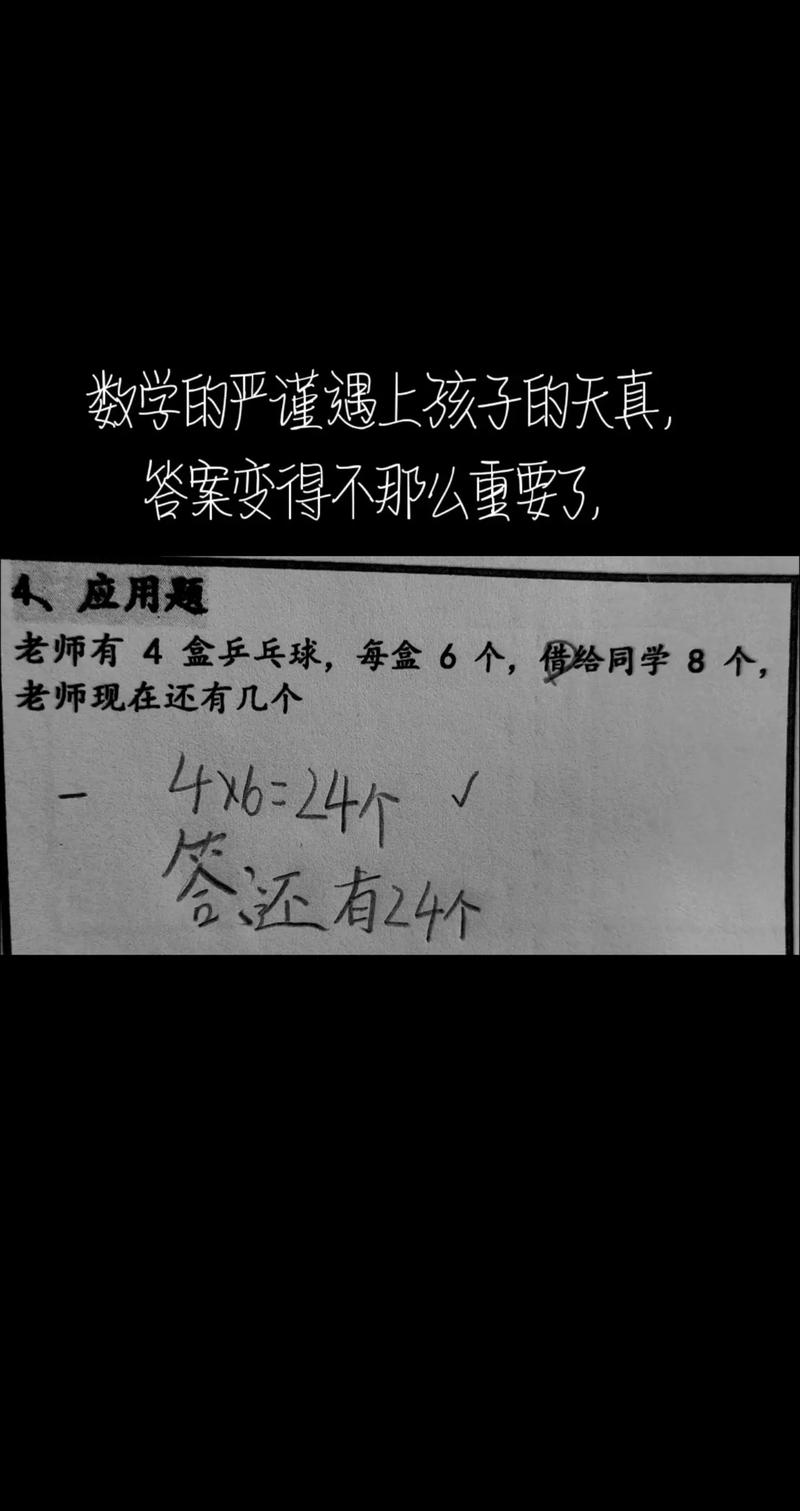 数学的严谨遇上孩子的天真,
答案变得不那么重要了,
4、应用题
老师有 4 盒乒乓球，每盒 6 个，借给同学 8 个，
老师现在还有几个
— 4×6=24个 ✓
答:还有24个